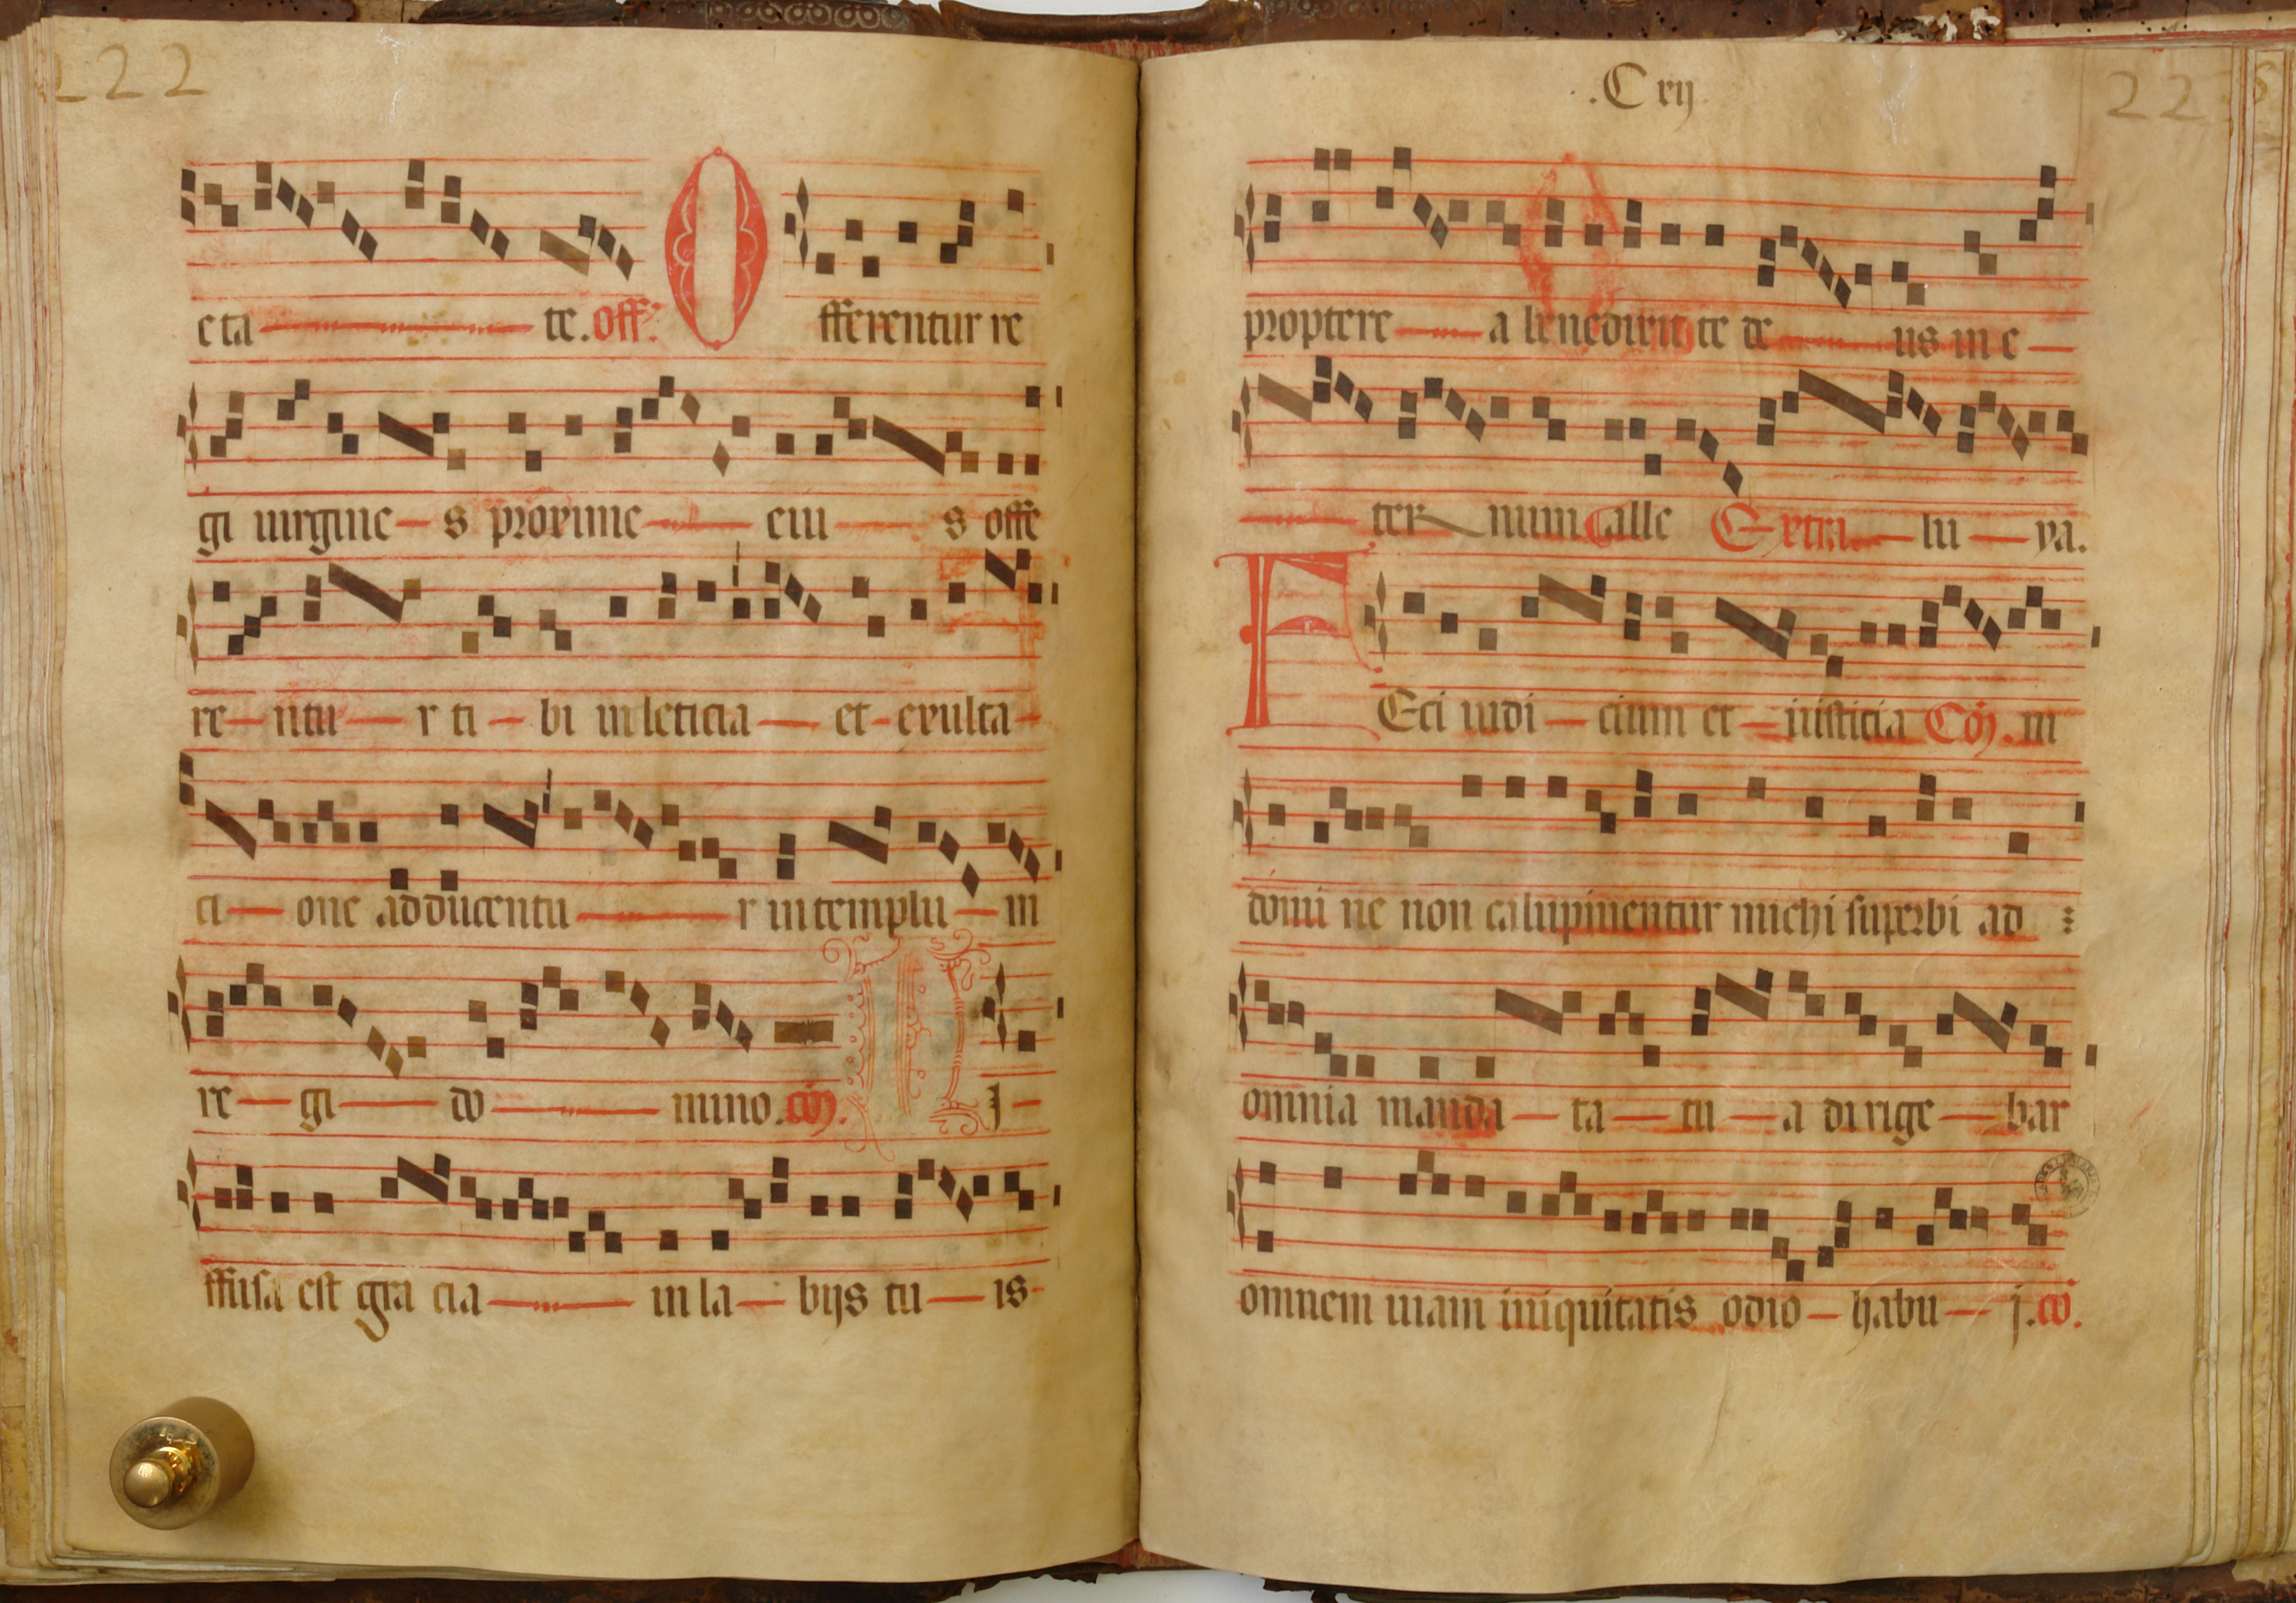 222
eta te. off.
O fferentur re
gi uirgine s proxime eiu s offe
re ntu r ti bi in leticia et exulta
ci one adducentu r in templu m
re gi do mino. cō. D j
ffusa est gra cia in la bijs tu is
.C xij
22
proptere a benedixit te de us in e
ter num alle Extra. lu ya.
F Eci iudi cium et iusticia Cō. m
domi ne non calupnientur michi superbi ad
omnia manda ta tu a dirige bar
omnem uiam iniquitatis odio habu j. co.